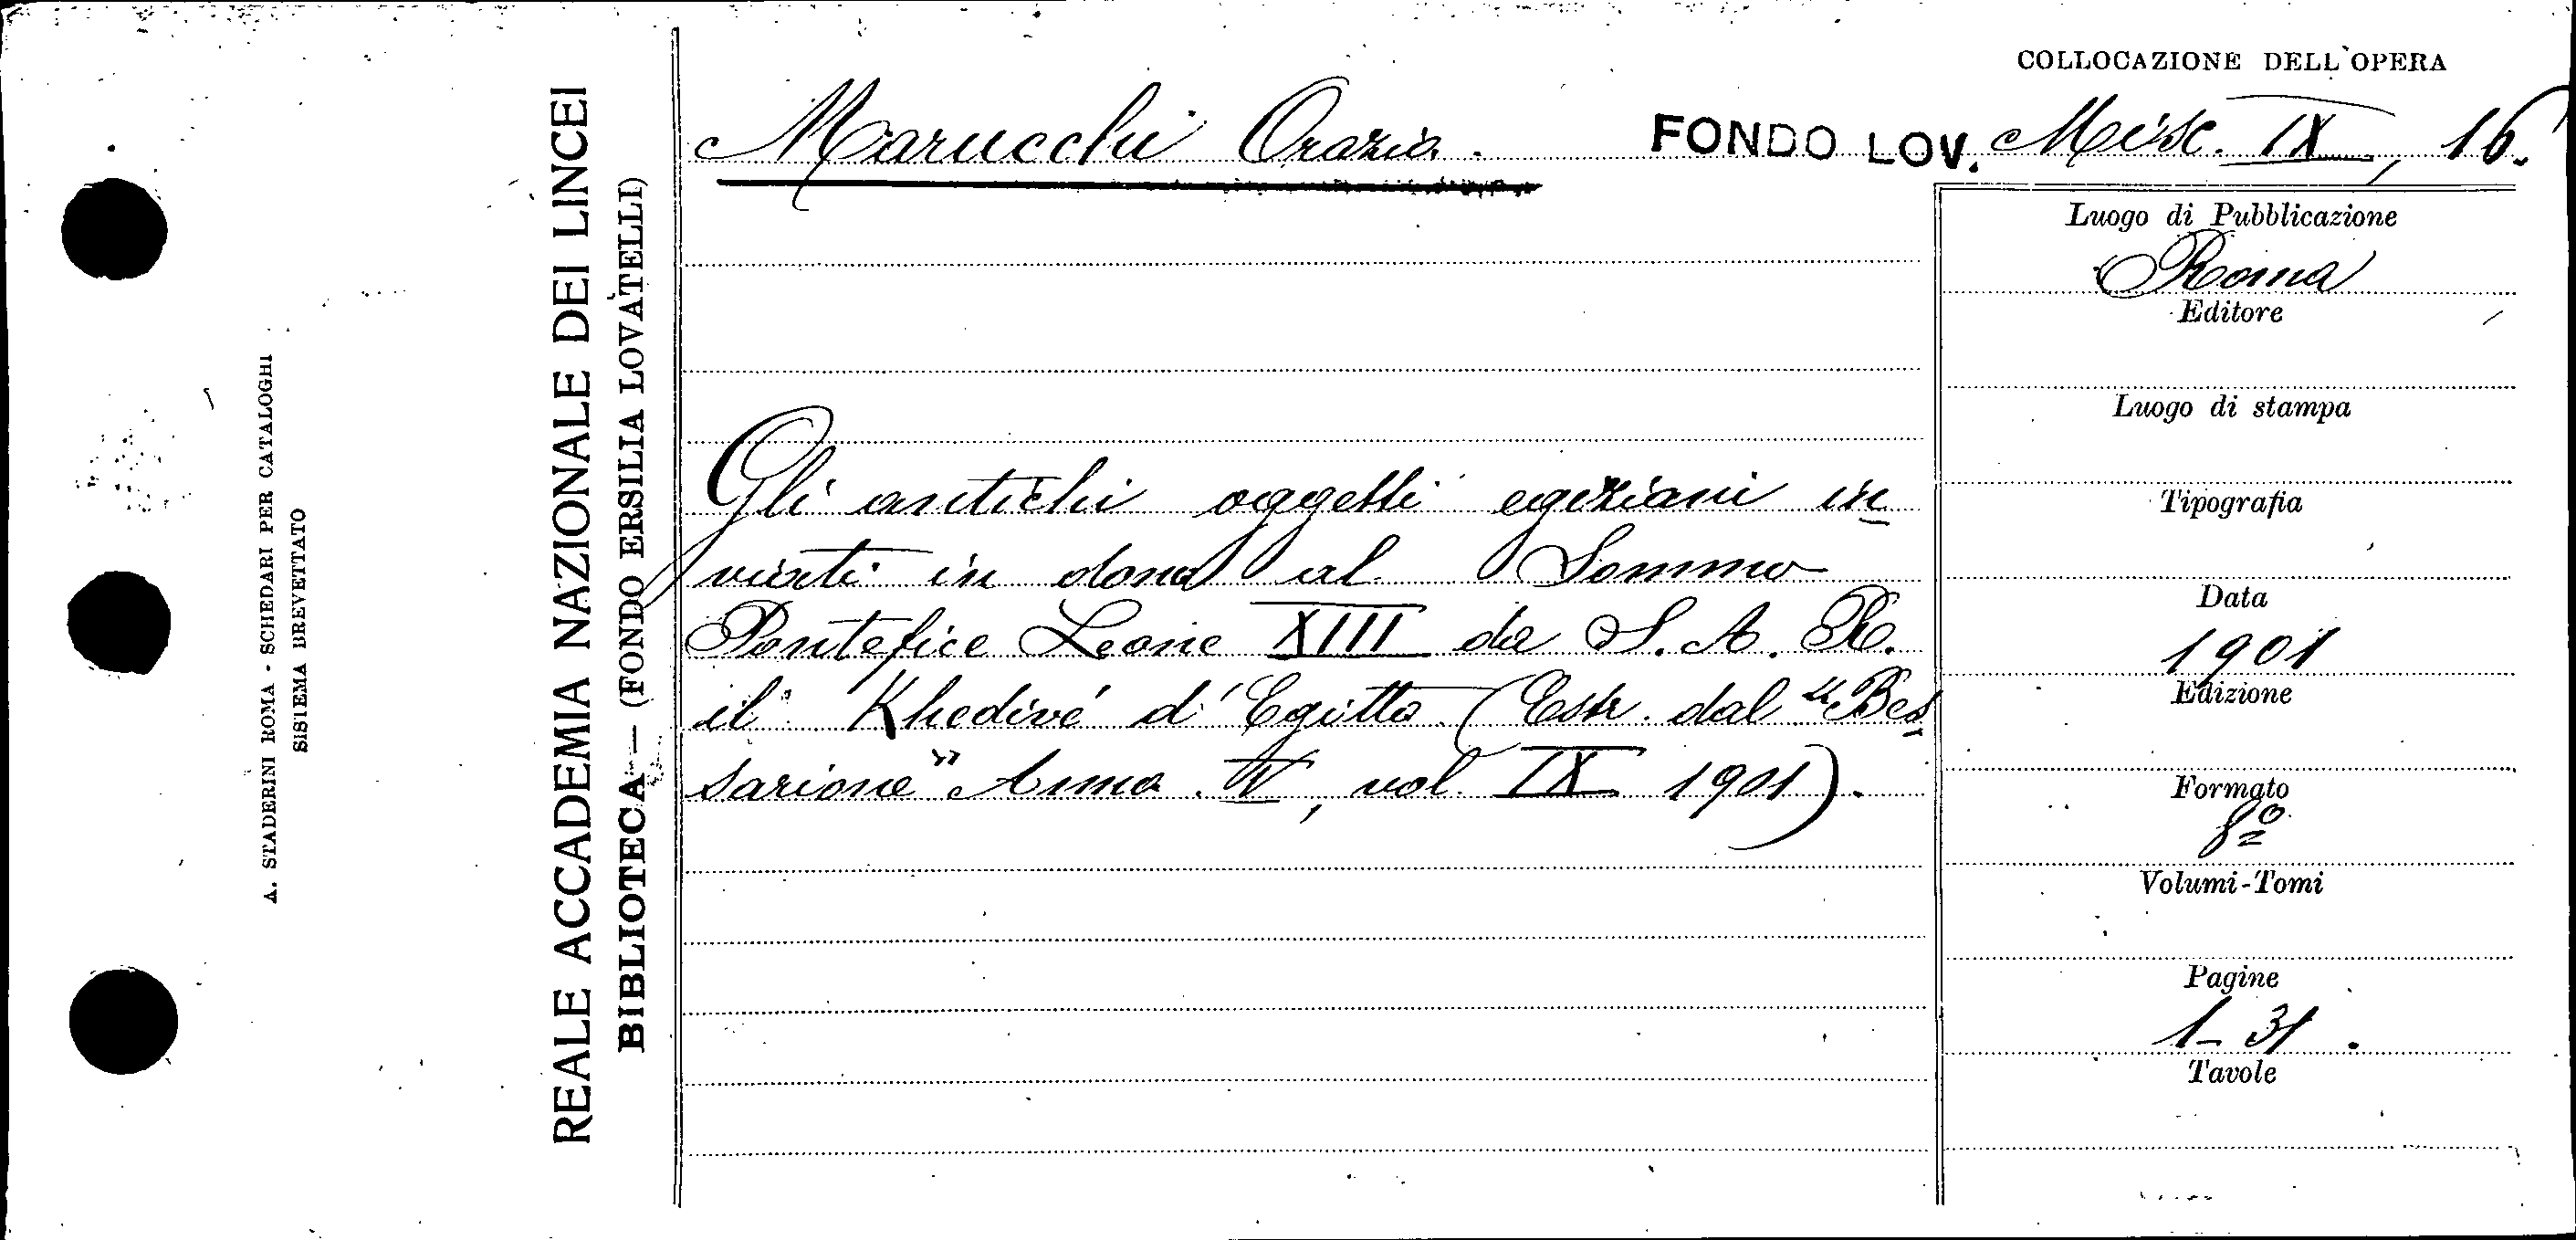 A. STADERINI ROMA - SCHEDARI PER CATALOGHI
SISTEMA BREVETTATO
REALE ACCADEMIA NAZIONALE DEI LINCEI
BIBLIOTECA — (FONDO ERSILIA LOVATELLI)
COLLOCAZIONE DELL'OPERA
Marucchi Orazio. FONDO LOV. Misc. IX, 16.
Gli antichi oggetti egiziani in
viati in dono al Sommo
Pontefice Leone XIII da S. A. R.
il Khedivé d'Egitto (Estr. dal "Bes
sarione" Anno V, vol. IX 1901).
Luogo di Pubblicazione
Roma
Editore
Luogo di stampa
Tipografia
Data
1901
Edizione
Formato
8º
Volumi-Tomi
Pagine
1-31.
Tavole